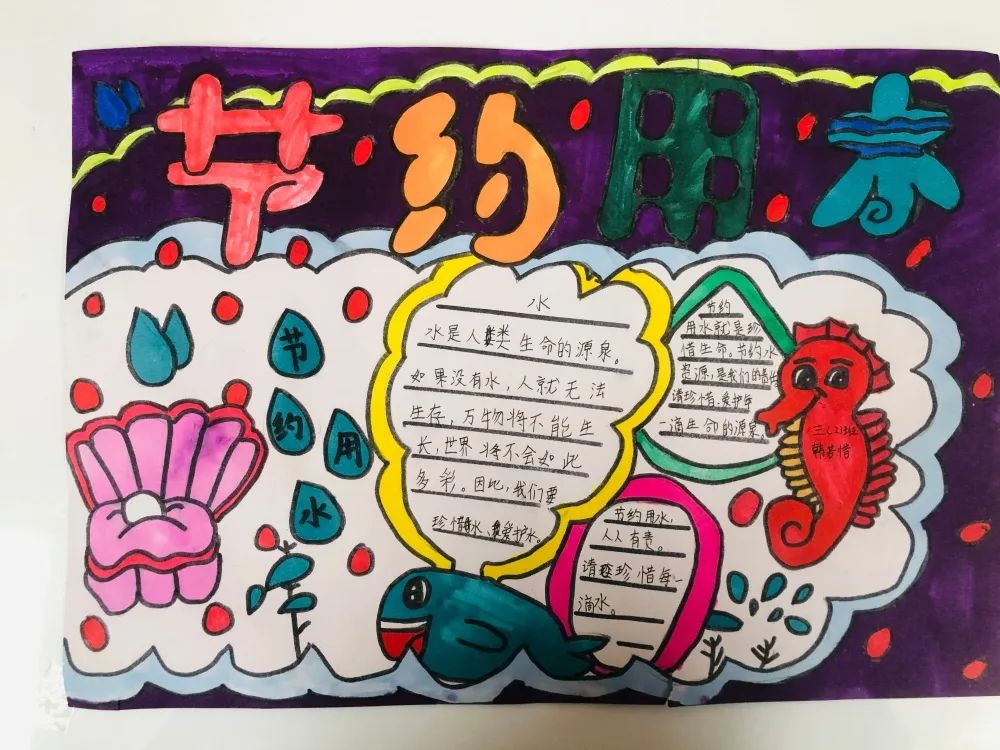 节约用水
节
约
用
水
水
水是人类生命的源泉。
如果没有水，人就无法
生存，万物将不能生
长，世界将不会如此
多彩。因此，我们要
珍惜水、爱护水。
节约
用水就是珍
惜生命。节约水
资源，是我们的责任
请珍惜、爱护每
一滴生命的源泉。
节约用水，
人人有责。
请珍惜每一
滴水。
三(2)班
韩若惜